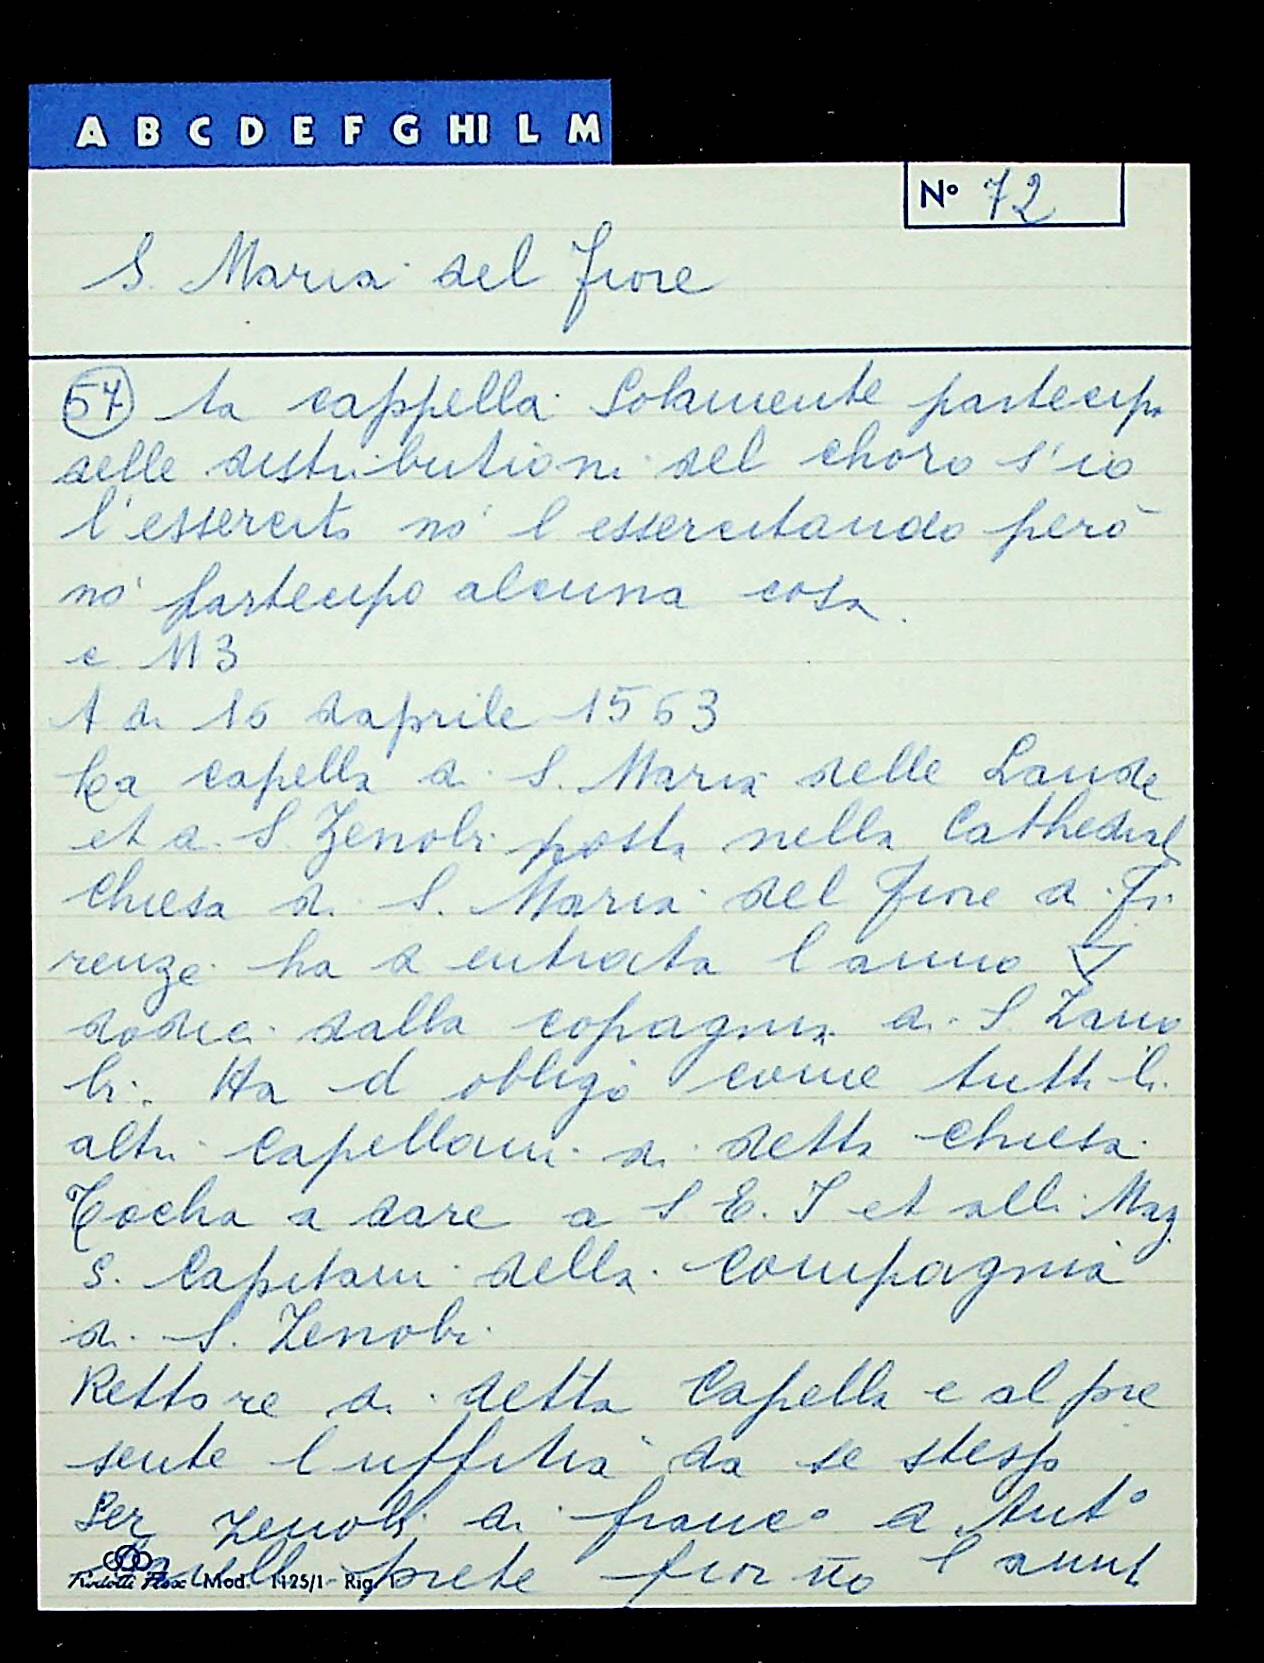 A B C D E F G HI L M
N° 72
S. Maria del fiore
57 la cappella Solamente partecipo
delle distributioni del choro s'io
l'essercito nō l essercitando però
nō partecipo alcuna cosa.
c 113
A di 16 daprile 1563
La capella di S. Maria delle Laude
et di S Zenobi posta nella Cathedral
Chiesa di S. Maria del fiore di Fi
renze ha d entrata l anno ▽
dodici dalla copagnia di S. Zano
bi. Ha d obligo come tutti li
altri Capellani di detta chiesa.
Tocha a dare a S E. I et alli Mag
S. Capitani della Compagnia
di S. Zenobi.
Rettore di detta Capella e al pre
sente l uffitia da se stesso
Ser Zenobi di franc° d Ant°
prete fior no l anni
Mod. 1125/1 - Rig. 1